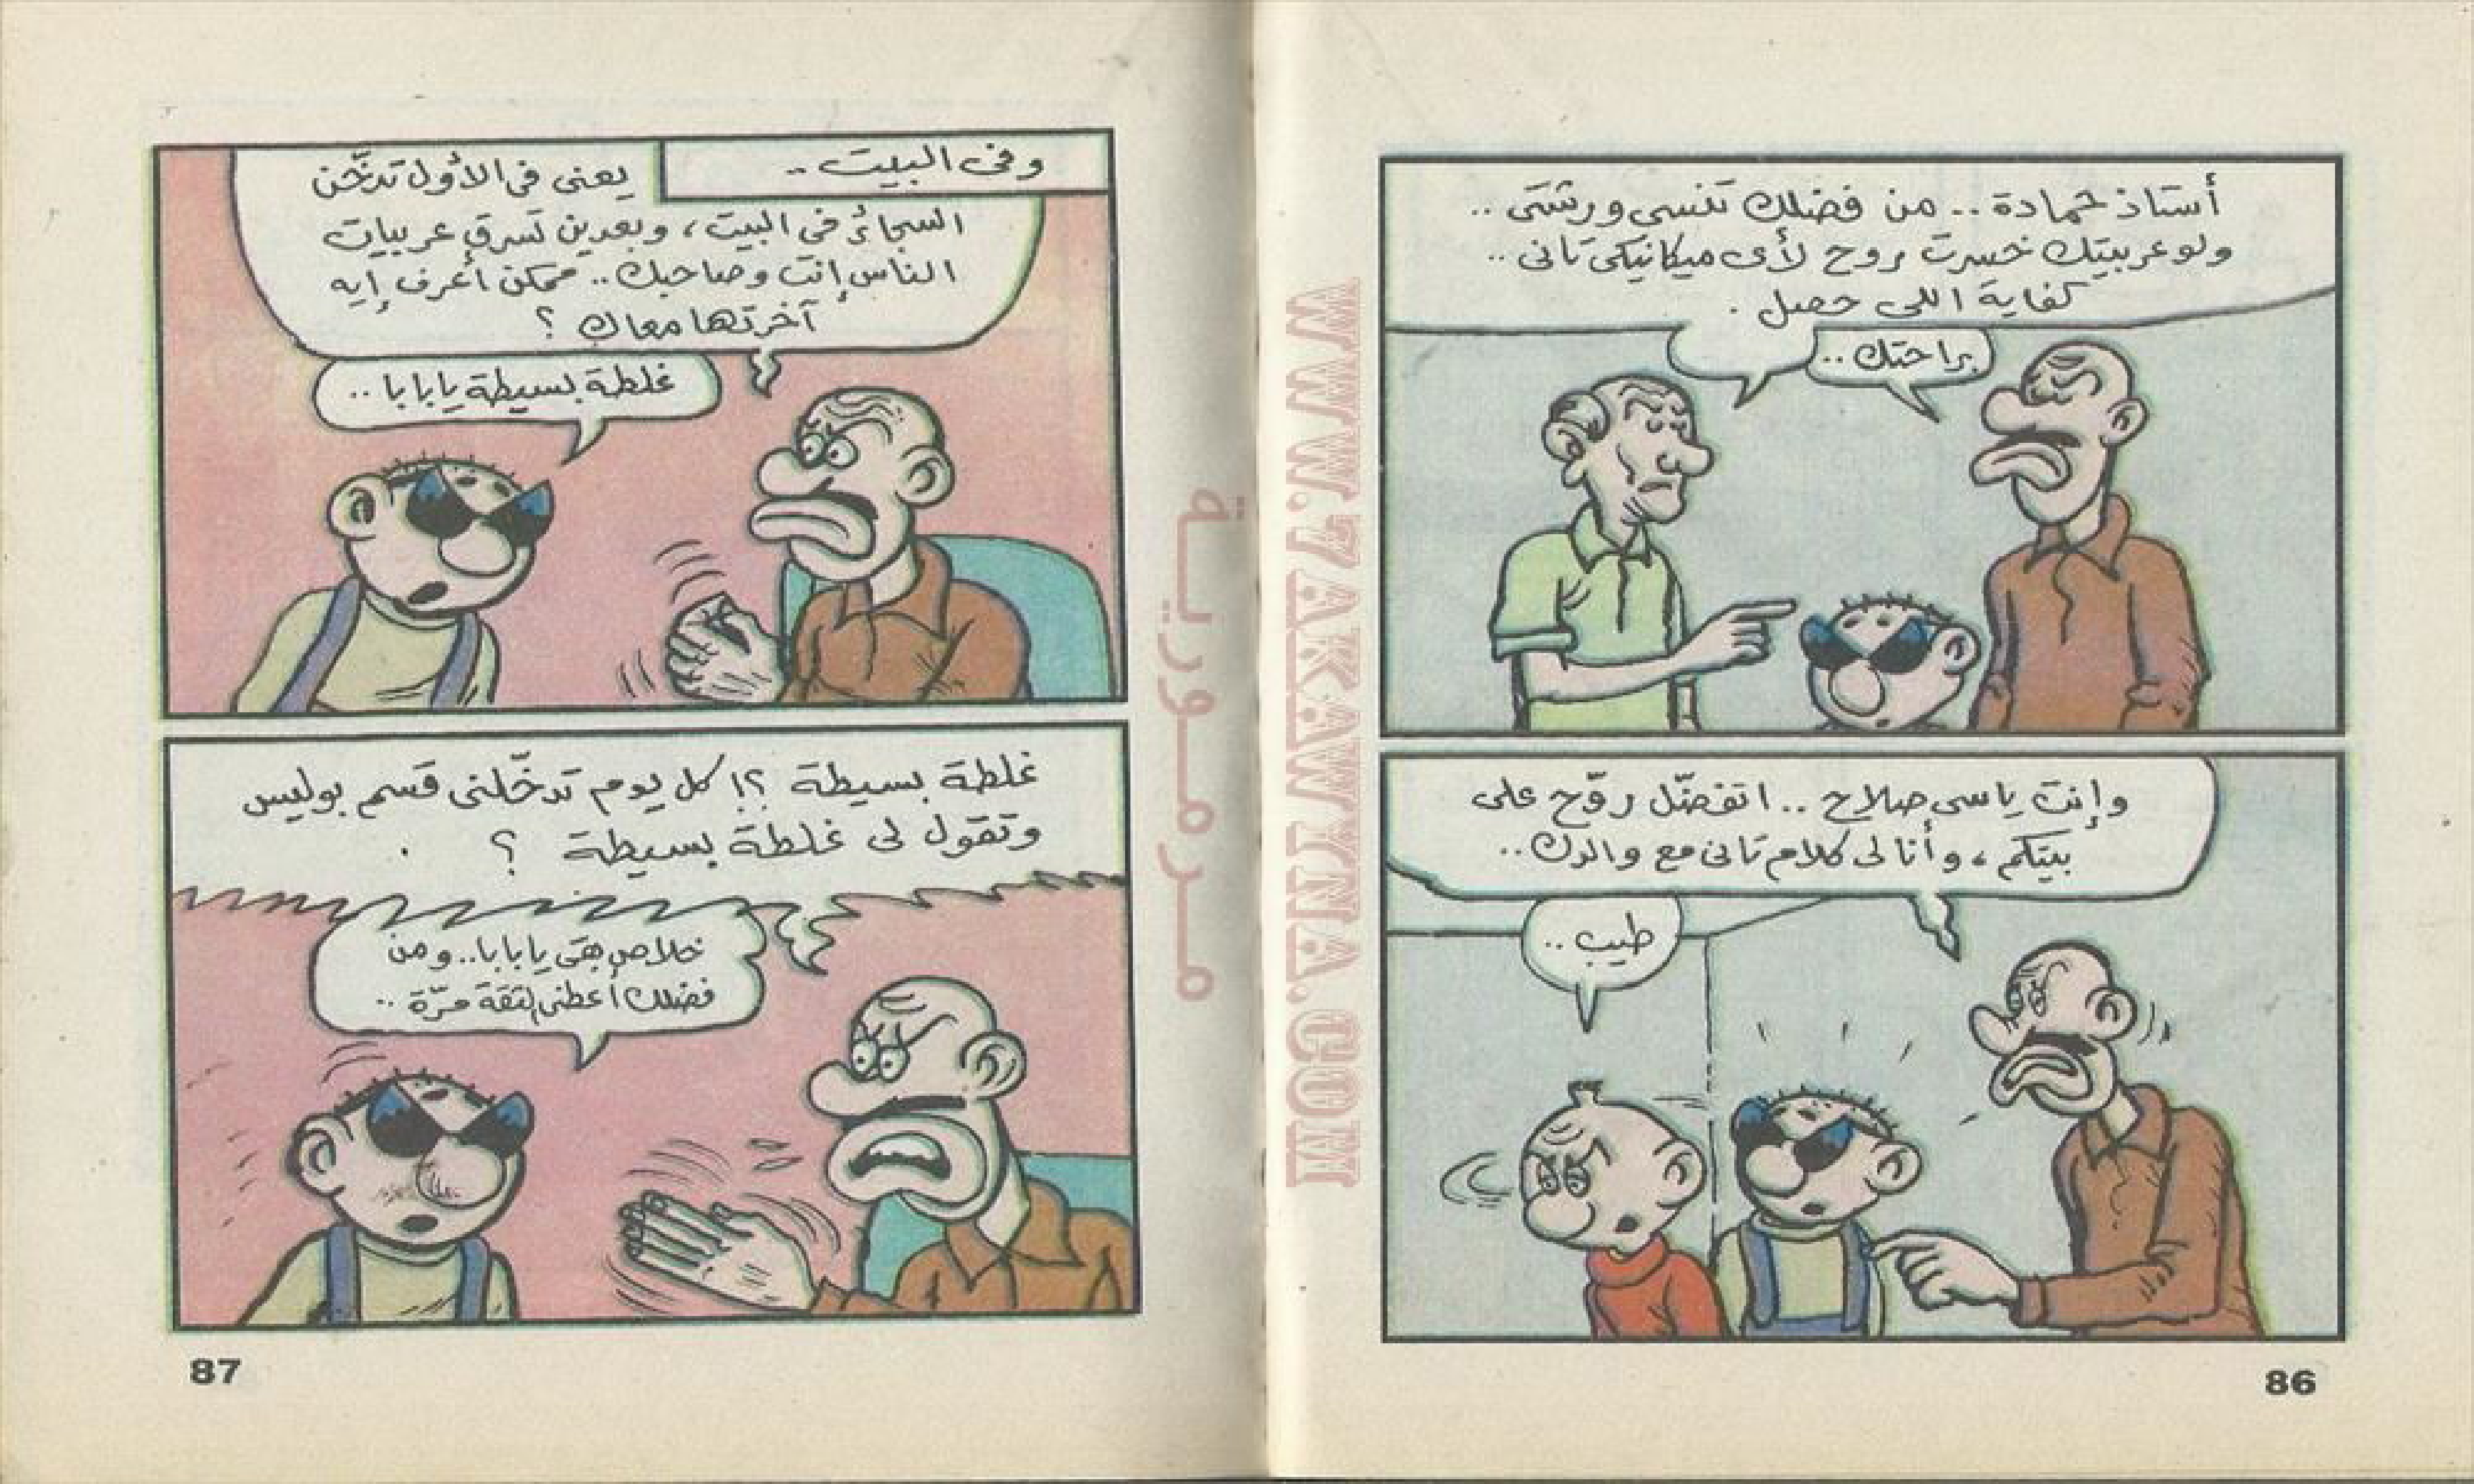 أستاذ حمادة .. من فضلك تنسى ورشتى ..
ولو عربيتك خسرت روح لأى ميكانيكى تانى ..
كفاية اللى حصل .
براحتك ..
وإنت ياسى صلاح .. اتفضّل روّح على
بيتكم ، وأنا لى كلام تانى مع والدك ..
طيب ..
86
وفى البيت ..
يعنى فى الأول تدخّن
السجائر فى البيت ، وبعدين تسرق عربيات
الناس إنت وصاحبك .. ممكن أعرف إيه
آخرتها معاك ؟
غلطة بسيطة يابابا ..
غلطة بسيطة ؟! كل يوم تدخّلنى قسم بوليس
وتقول لى غلطة بسيطة ؟
خلاص بقى يابابا .. ومن
فضلك أعطنى الثقة مرّة ..
87
مرمورية
WWW.7AKAWYNA.COM